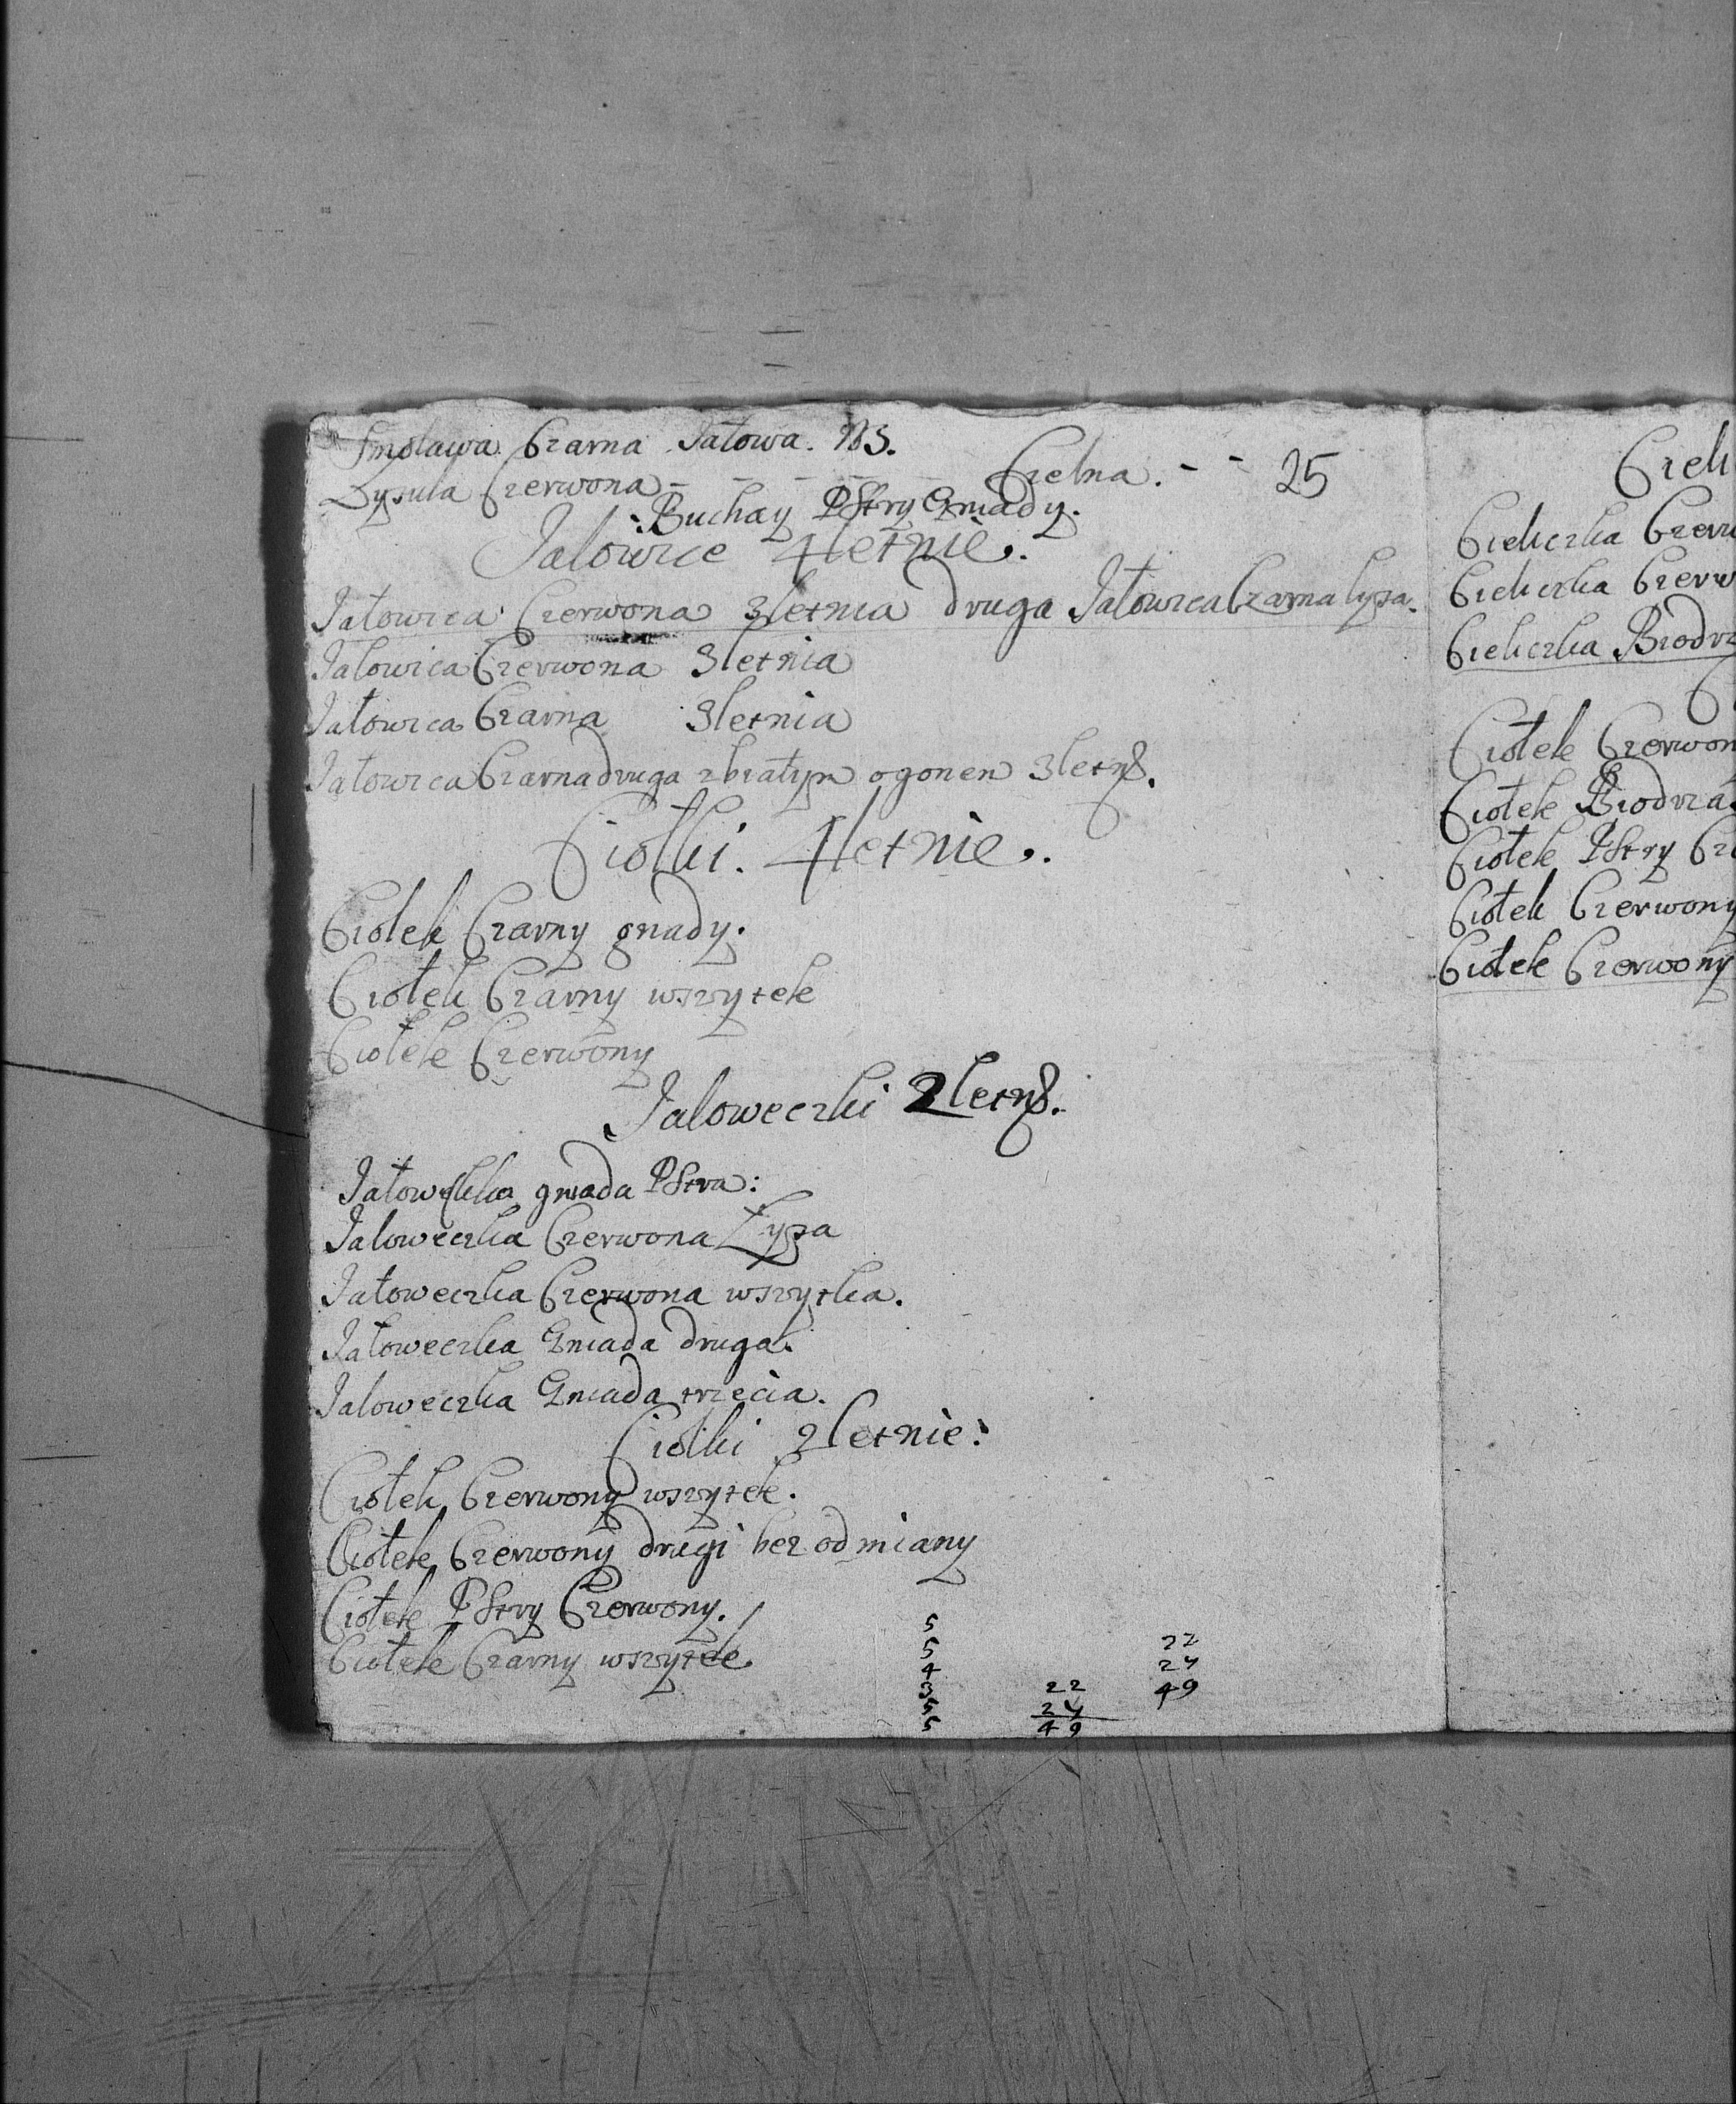 Smolawa Czarna Jałowa. NB.
Łysula Czerwona - - - - Cielna. - - 25
:Buchay PStry Gniady.
Jalowice 4letnie.
Jałowica Czerwona 3letnia druga Jałowica Czarna łysa.
Jalowica Czerwona 3letnia
Jałowica Czarna 3letnia
Jałowica Czarna druga zbiałym ogonem
Ciołki. 4letnie.
Ciolek Czarny gnady.
Ciołek Czarny wszytek
Ciołek Czerwony
Jaloweczki
gniada PStra:
Jaloweczka Czerwona Łysa
Jałoweczka Czerwona wszytka.
Jałoweczka Gniada druga.
Jaloweczka Gniada trzecia.
Ciołki 2letnie:
Ciołek Czerwony wszytek.
Ciołek Czerwony drugi bez odmiany
Ciołek PStry Czerwony.
Ciołek Czarny wszytek
5
5
4
5
22
49
22
49
Cieliczka
Cieliczka
Cieliczka
Ciołek
Ciołek
Ciołek PStry
Ciołek Czerwony
Ciołek Czerwony